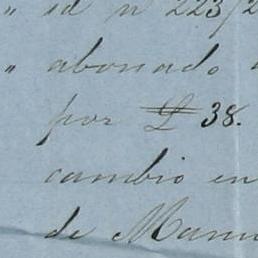 " id n 223/2
" abonado
por £ 38.
cambio en
de